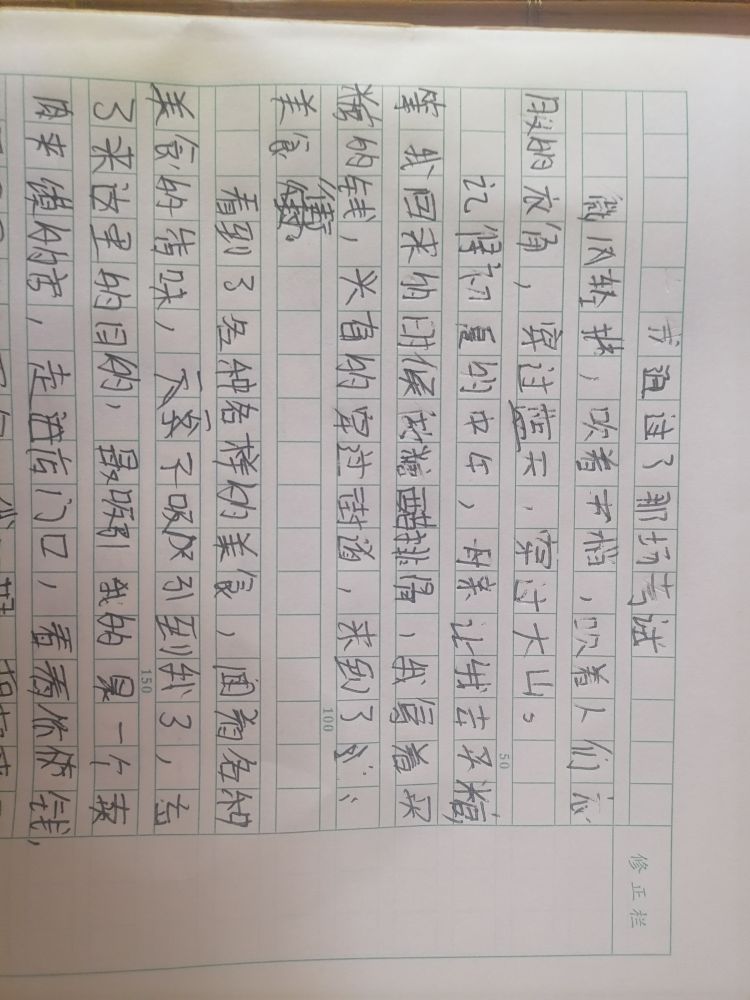 我通过了那场考试
微风轻拂，吹着书梢，吹着人们衣
服的衣角，穿过蓝天，穿过大山。
记得初夏的中午，母亲让我去买糖
等我回来的时候做糖醋排骨，我拿着买
糖的钱，兴奋的穿过街道，来到了
美食街。
看到了各种各样的美食，闻着各种
美食的香味，吸引到我了，去
了来这里的目的，最吸引我的是一个卖
肉来的店，走进店门口，看看价钱，
修正栏
50
100
150